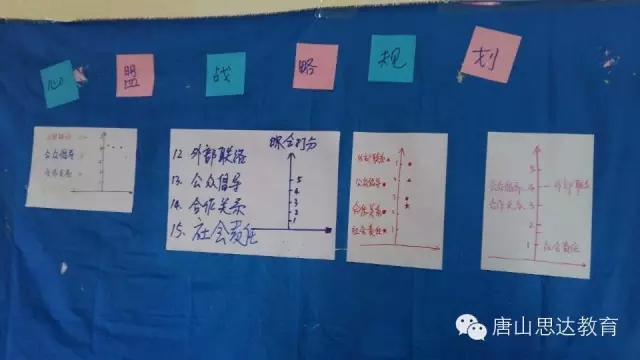 心盟战略规划
公众倡导
12. 外部联络
13. 公众倡导
14. 合作关系
15. 社会责任
综合打分
5
4
3
2
1
外部联络
公众倡导
合作关系
社会责任
5
4
3
2
1
公众倡导
外部联络
合作关系
社会责任
唐山思达教育